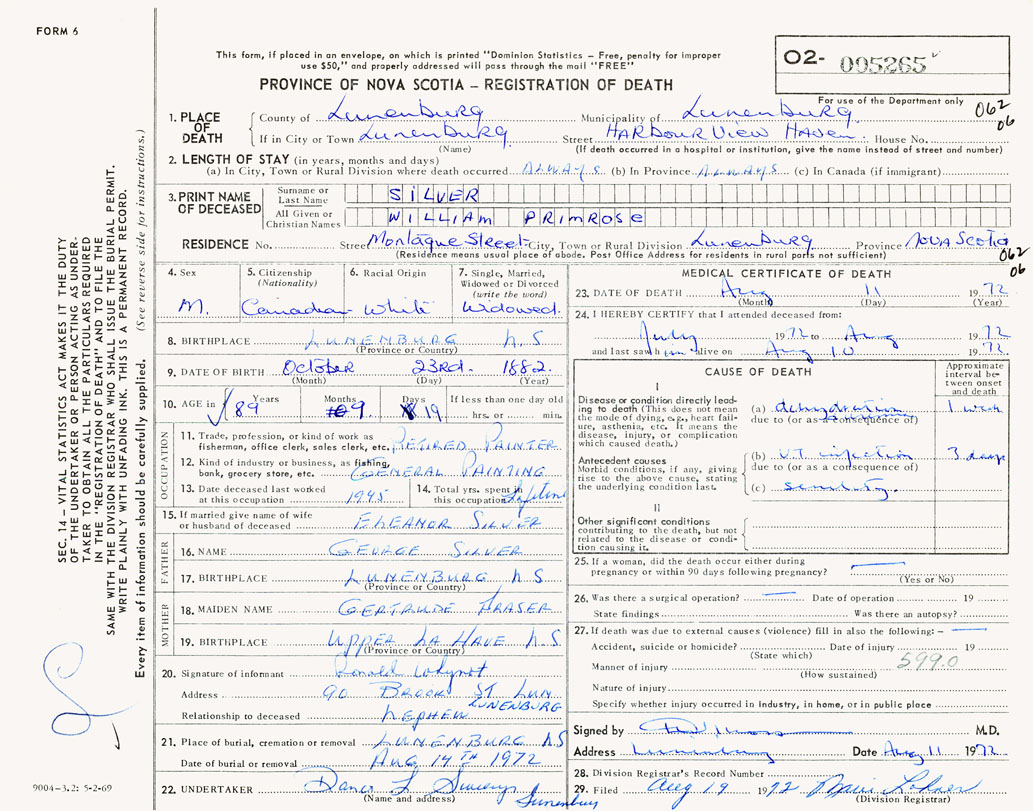 FORM 6
This form, if placed in an envelope, on which is printed "Dominion Statistics – Free, penalty for improper
use $50," and properly addressed will pass through the mail "FREE"
PROVINCE OF NOVA SCOTIA – REGISTRATION OF DEATH
O2- 005265
For use of the Department only
062
06
1. PLACE OF DEATH
County of Lunenburg Municipality of Lunenburg
If in City or Town Lunenburg Street HARBOUR VIEW HAVEN House No.
(Name) (If death occurred in a hospital or institution, give the name instead of street and number)
2. LENGTH OF STAY (in years, months and days)
(a) In City, Town or Rural Division where death occurred ALWAYS (b) In Province ALWAYS (c) In Canada (if immigrant)
3. PRINT NAME OF DECEASED
Surname or Last Name SILVER
All Given or Christian Names WILLIAM PRIMROSE
RESIDENCE No. Street Montague Street City, Town or Rural Division Lunenburg Province NOVA SCOTIA
(Residence means usual place of abode. Post Office Address for residents in rural parts not sufficient)
062
06
4. Sex M.
5. Citizenship (Nationality) Canadian
6. Racial Origin White
7. Single, Married, Widowed or Divorced (write the word) Widowed
8. BIRTHPLACE LUNENBURG N.S.
(Province or Country)
9. DATE OF BIRTH October 23rd. 1882
(Month) (Day) (Year)
10. AGE in Years Months Days If less than one day old
89 9 19 hrs. or min.
OCCUPATION
11. Trade, profession, or kind of work as
fisherman, office clerk, sales clerk, etc. RETIRED PAINTER
12. Kind of industry or business, as fishing,
bank, grocery store, etc. GENERAL PAINTING
13. Date deceased last worked
at this occupation 1945
14. Total yrs. spent in
this occupation Lifetime
15. If married give name of wife
or husband of deceased ELEANOR SILVER
FATHER
16. NAME GEORGE SILVER
17. BIRTHPLACE LUNENBURG N.S
(Province or Country)
MOTHER
18. MAIDEN NAME GERTRUDE FRASER
19. BIRTHPLACE UPPER LA HAVE N.S
(Province or Country)
20. Signature of informant Ronald
Address 90 BROOK ST LUN
LUNENBURG
Relationship to deceased NEPHEW
21. Place of burial, cremation or removal LUNENBURG N.S
Date of burial or removal AUG 14TH 1972
22. UNDERTAKER Lunenburg
(Name and address)
MEDICAL CERTIFICATE OF DEATH
23. DATE OF DEATH Aug 11 1972
(Month) (Day) (Year)
24. I HEREBY CERTIFY that I attended deceased from:
July 1972 to Aug 1972
and last saw him alive on Aug 10 1972.
CAUSE OF DEATH
Approximate interval between onset and death
I
Disease or condition directly leading to death (This does not mean the mode of dying, e.g., heart failure, asthenia, etc. It means the disease, injury, or complication which caused death.)
(a) dehydration 1 week
due to (or as a consequence of)
Antecedent causes
Morbid conditions, if any, giving rise to the above cause, stating the underlying condition last.
(b) U.T. infection 3 days
due to (or as a consequence of)
(c) senility.
II
Other significant conditions
contributing to the death, but not related to the disease or condition causing it.
25. If a woman, did the death occur either during
pregnancy or within 90 days following pregnancy?
(Yes or No)
26. Was there a surgical operation? Date of operation 19
State findings Was there an autopsy?
27. If death was due to external causes (violence) fill in also the following: –
Accident, suicide or homicide? Date of injury 19
(State which) 599.0
Manner of injury
(How sustained)
Nature of injury
Specify whether injury occurred in industry, in home, or in public place
Signed by M.D.
Address Lunenburg Date Aug 11 1972
28. Division Registrar's Record Number
29. Filed Aug 19 1972
(Division Registrar)
SEC. 14 – VITAL STATISTICS ACT MAKES IT THE DUTY
OF THE UNDERTAKER OR PERSON ACTING AS UNDER-
TAKER TO OBTAIN ALL THE PARTICULARS REQUIRED
IN THE "REGISTRATION OF DEATH" AND TO FILE THE
SAME WITH THE DIVISION REGISTRAR WHO SHALL ISSUE THE BURIAL PERMIT.
WRITE PLAINLY WITH UNFADING INK. THIS IS A PERMANENT RECORD.
Every item of information should be carefully supplied. (See reverse side for instructions.)
9004–3.2: 5-2-69